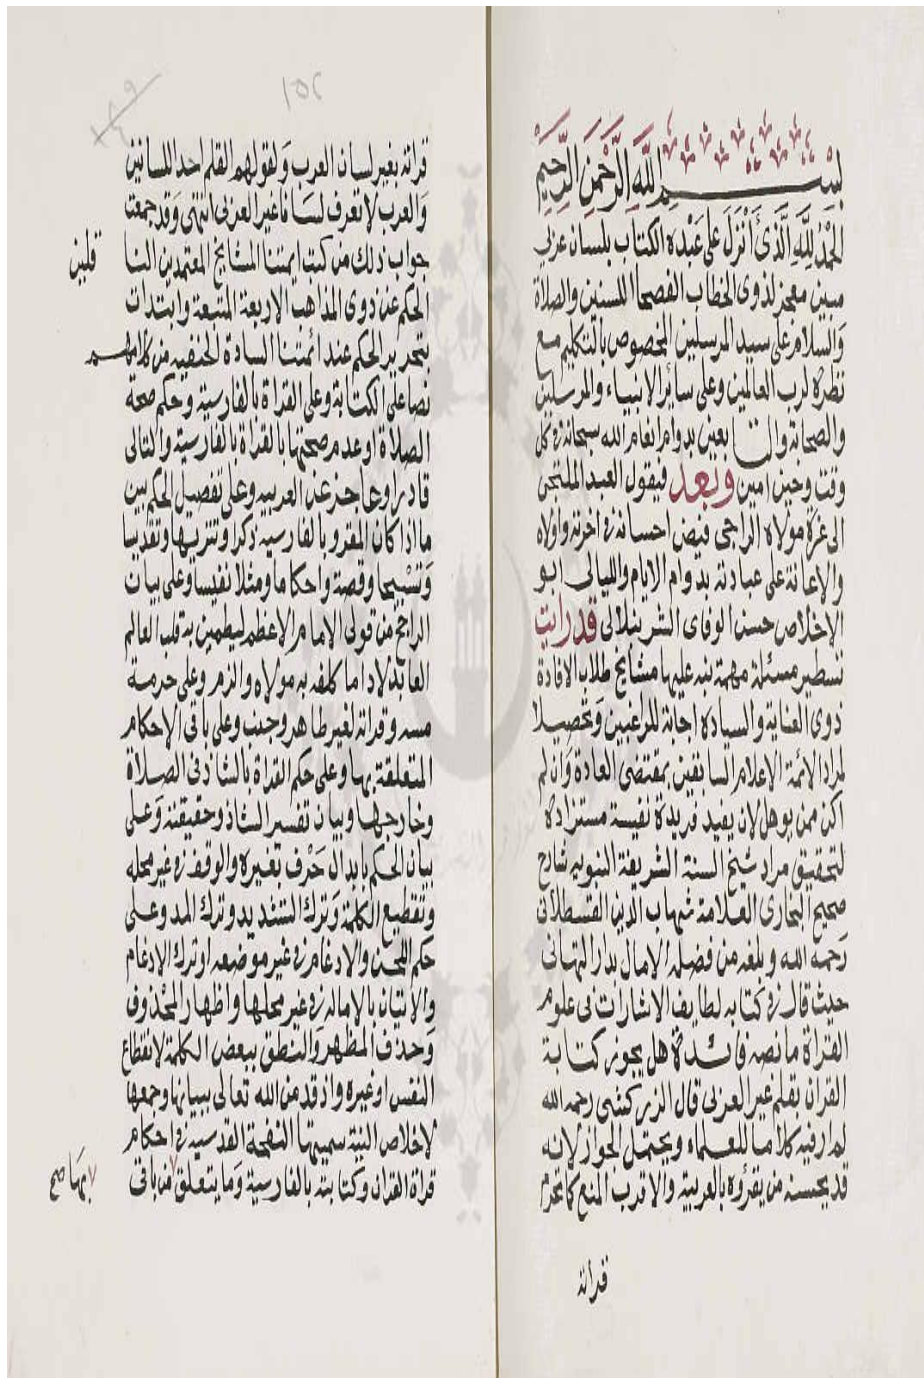 بسم الله الرحمن الرحيم
الحمد لله الذي أنزل على عبده الكتاب بلسان عربي
مبين معجز لذوي الخطاب الفصحا اللسنين والصلاة
والسلام على سيد المرسلين المخصوص بالتكليم مع
نظره لرب العالمين وعلى سائر الانبياء والمرسلين
والصحابة والتابعين بدوام انعام الله سبحانه في كل
وقت وحين امين وبعد فيقول العبد الملتجئ
الى عزة مولاه الراجي فيض احسانه في اخرته واولاه
والاعانة على عبادته بدوام الايام والليالي ابو
الاخلاص حسن الوفاي الشرنبلالي قد رايت
تسطير مسئلة مهمة نبه عليها مشايخ طلاب الافادة
ذوي العناية والسيادة اجابة للراغبين وتحصيلا
لمراد الائمة الاعلام السابقين بمقتضى العادة وان لم
اكن ممن يوهل لان يفيد فريدة نفيسة مستزادة
لتحقيق مراد شيخ السنة الشريفة النبوية شارح
صحيح البخاري العلامة شهاب الدين القسطلاني
رحمه الله وبلغه من فضله الامال بدار التهاني
حيث قال في كتابه لطايف الاشارات في علوم
القراة ما نصه فائدة هل يجوز كتابة
القران بقلم غير العربي قال الزركشي رحمه الله
لم ار فيه كلاما للعلماء ويحتمل الجواز لانه
قد يحسنه من يقرؤه بالعربية والاقرب المنع كما تحرم
قرائة
١٥٢
قرائه بغير لسان العرب ولقولهم القلم احد اللسانين
والعرب لا تعرف لسانا غير العربي انتهى وقد جمعت
جواب ذلك من كتب ايمتنا المشايخ المعتمدين
الحكم عن ذوي المذاهب الاربعة المتبعة وابتدات
بتحرير الحكم عند ائمتنا السادة الحنفيه من كلامهم
نصا على الكتابة وعلى القراة بالفارسية وحكم صحة
الصلاة او عدم صحتها بالقراة بالفارسية والتالي
قادر او عاجز عن العربيه وعلى تفصيل الحكم بين
ما اذا كان المقرو بالفارسيه ذكر وتنزيها وتقديسا
وتسبيحا وقصة واحكاما ومثلا نفيسا وعلى بيان
الراجح من قولي الامام الاعظم ليطمين به قلب العالم
العابد لاداما كلفه به مولاه والزم وعلى حرمة
مسه وقرائه لغير طاهر وجنب وعلى باقي الاحكام
المتعلقة بها وعلى حكم القراة بالشاذ في الصلاة
وخارجها وبيان تفسير الشاذ وحقيقته وعلى
بيان الحكم بابدال حرف بغيره والوقف في غير محله
وتقطيع الكلمة وترك التشديد وترك المد وعلى
حكم اللحن والادغام في غير موضعه او ترك الادغام
والاتيان بالاماله في غير محلها واظهار المحذوف
وحذف المظهر والنطق ببعض الكلمة لانقطاع
النفس او غيره واذ قد من الله تعالى ببيانها وجمعها
لاخلاص النية سميتها النفحة القدسية في احكام
قراة القران وكتابته بالفارسية وما يتعلق من باقي
بها صح